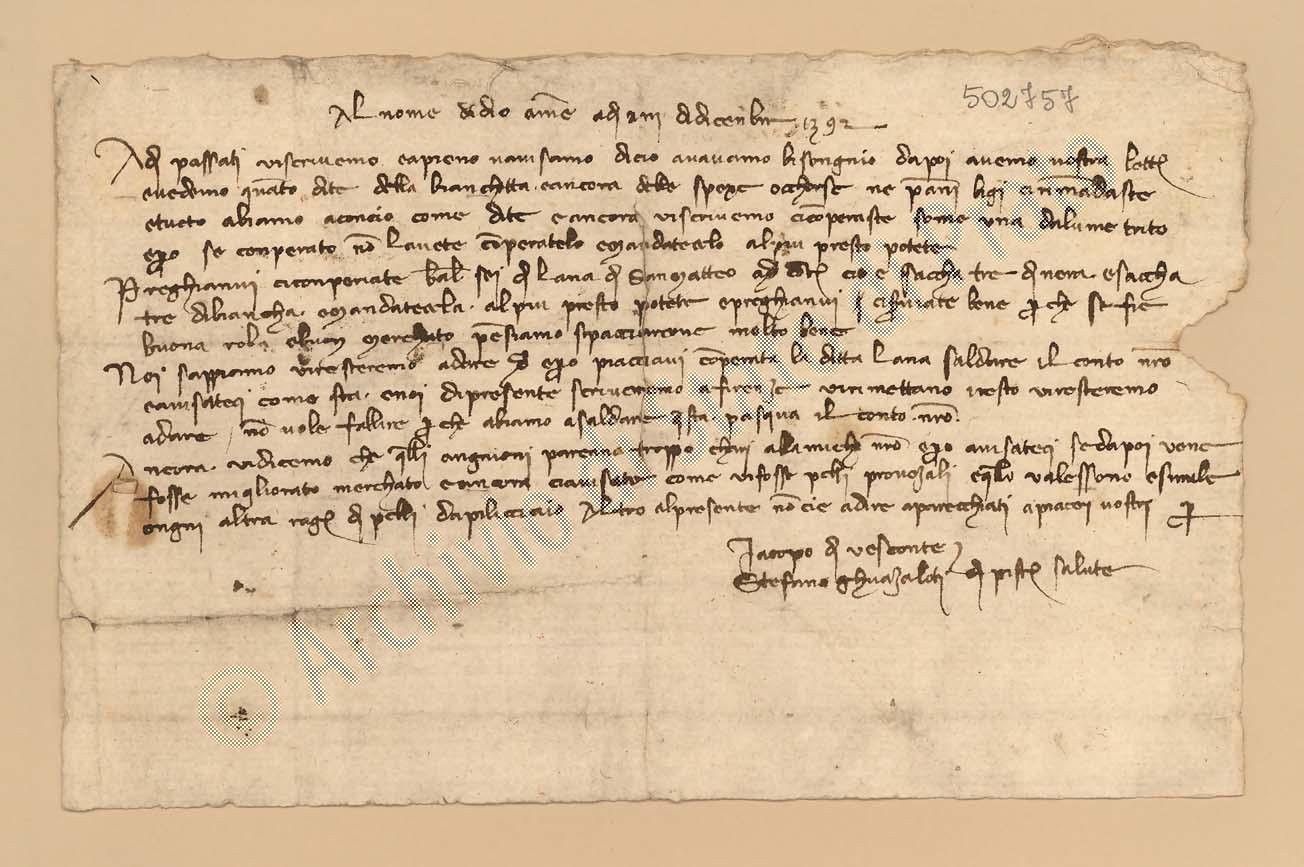 502757
Al nome di dio ame adi xiii didicenbre 1392
Adi passati viscrivemo eapreno navisamo dicio avavamo bisongnio dapoi avemo vostra lettera
avedemo quato dite della bianchetta eancora delle spexe ne pani bigi cimadaste
etucto abiamo aconcio come dite eancora viscrivemo cicoperaste some una dalume trito
epo se conperato no lavete coperatelo emandatecelo alpiu presto potete
Preghianvi ciconperiate bal sei di lana di sanmatteo cioe saccha tre di nera esaccha
tre dibiancha emandatecela alpiu presto potete epreghianvi cifornate bene p che se fie
buona roba ebuon merchato pesiamo spacciarcene molto bene
Noi sappiamo viresteremo adare epo piacciavi coperata la ditta lana saldare il conto nro
eavisateci come sta enoi dipresente scriveremo afirenze virimettano iresto viresteremo
adare no vole fallire p che abiamo asaldare questa pasqua il conto nro
Ancora vidicemo che quelli angnioni pareano troppo chari alamicho nro epo avisateci sedapoi vene
fosse migliorato merchato eancora ciavisate come vifosse pelli provezali equello valessono esimile
ongni altra ragi di pelli dapilicciaio Altro alpresente no cie adire aparecchiati apiaceri vostri
Iacopo di vesconte
Stefano ghuazaloti di pist salute
© Archivio di Stato di Prato